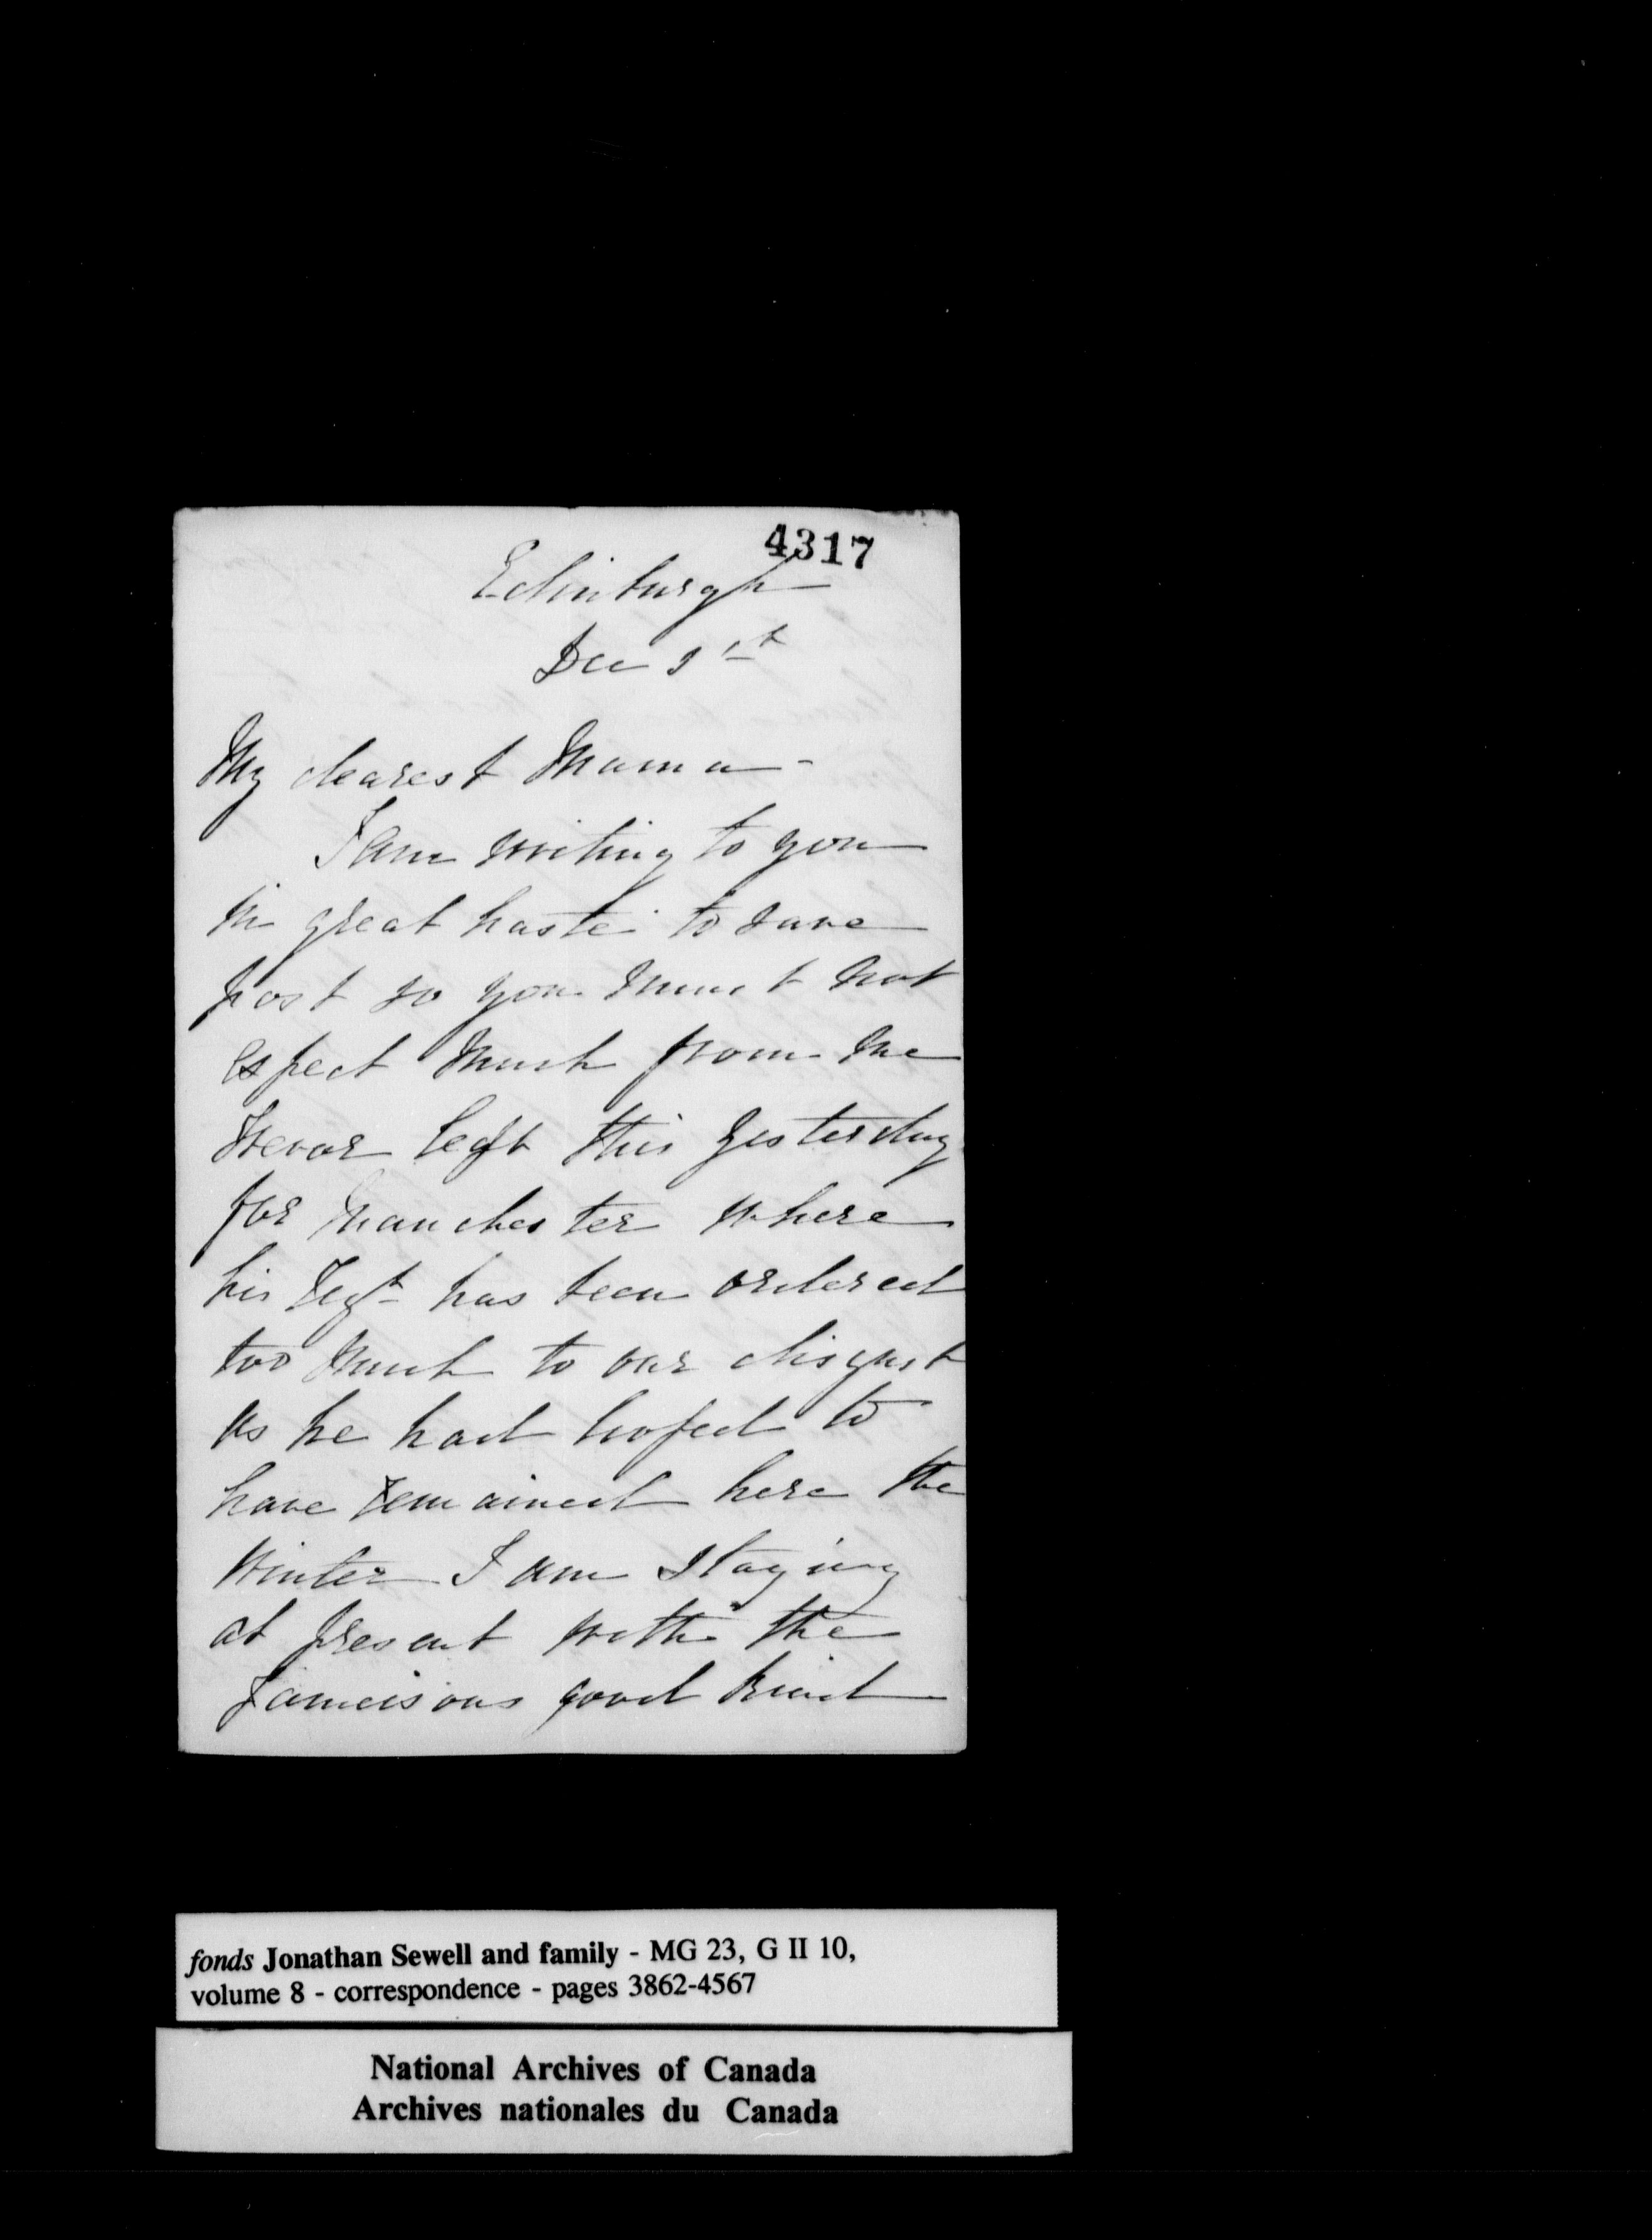 4317
Edinburgh
Dec 1st
My dearest Mama -
I am writing to you
in great haste to save
post so you must not
expect much from me
Trevor left this yesterday
for Manchester where
his Regt has been ordered
too much to our disgust
as he had hoped to
have remained here the
Winter I am staying
at present with the
Jameisons good kind
fonds Jonathan Sewell and family - MG 23, G II 10,
volume 8 - correspondence - pages 3862-4567
National Archives of Canada
Archives nationales du Canada